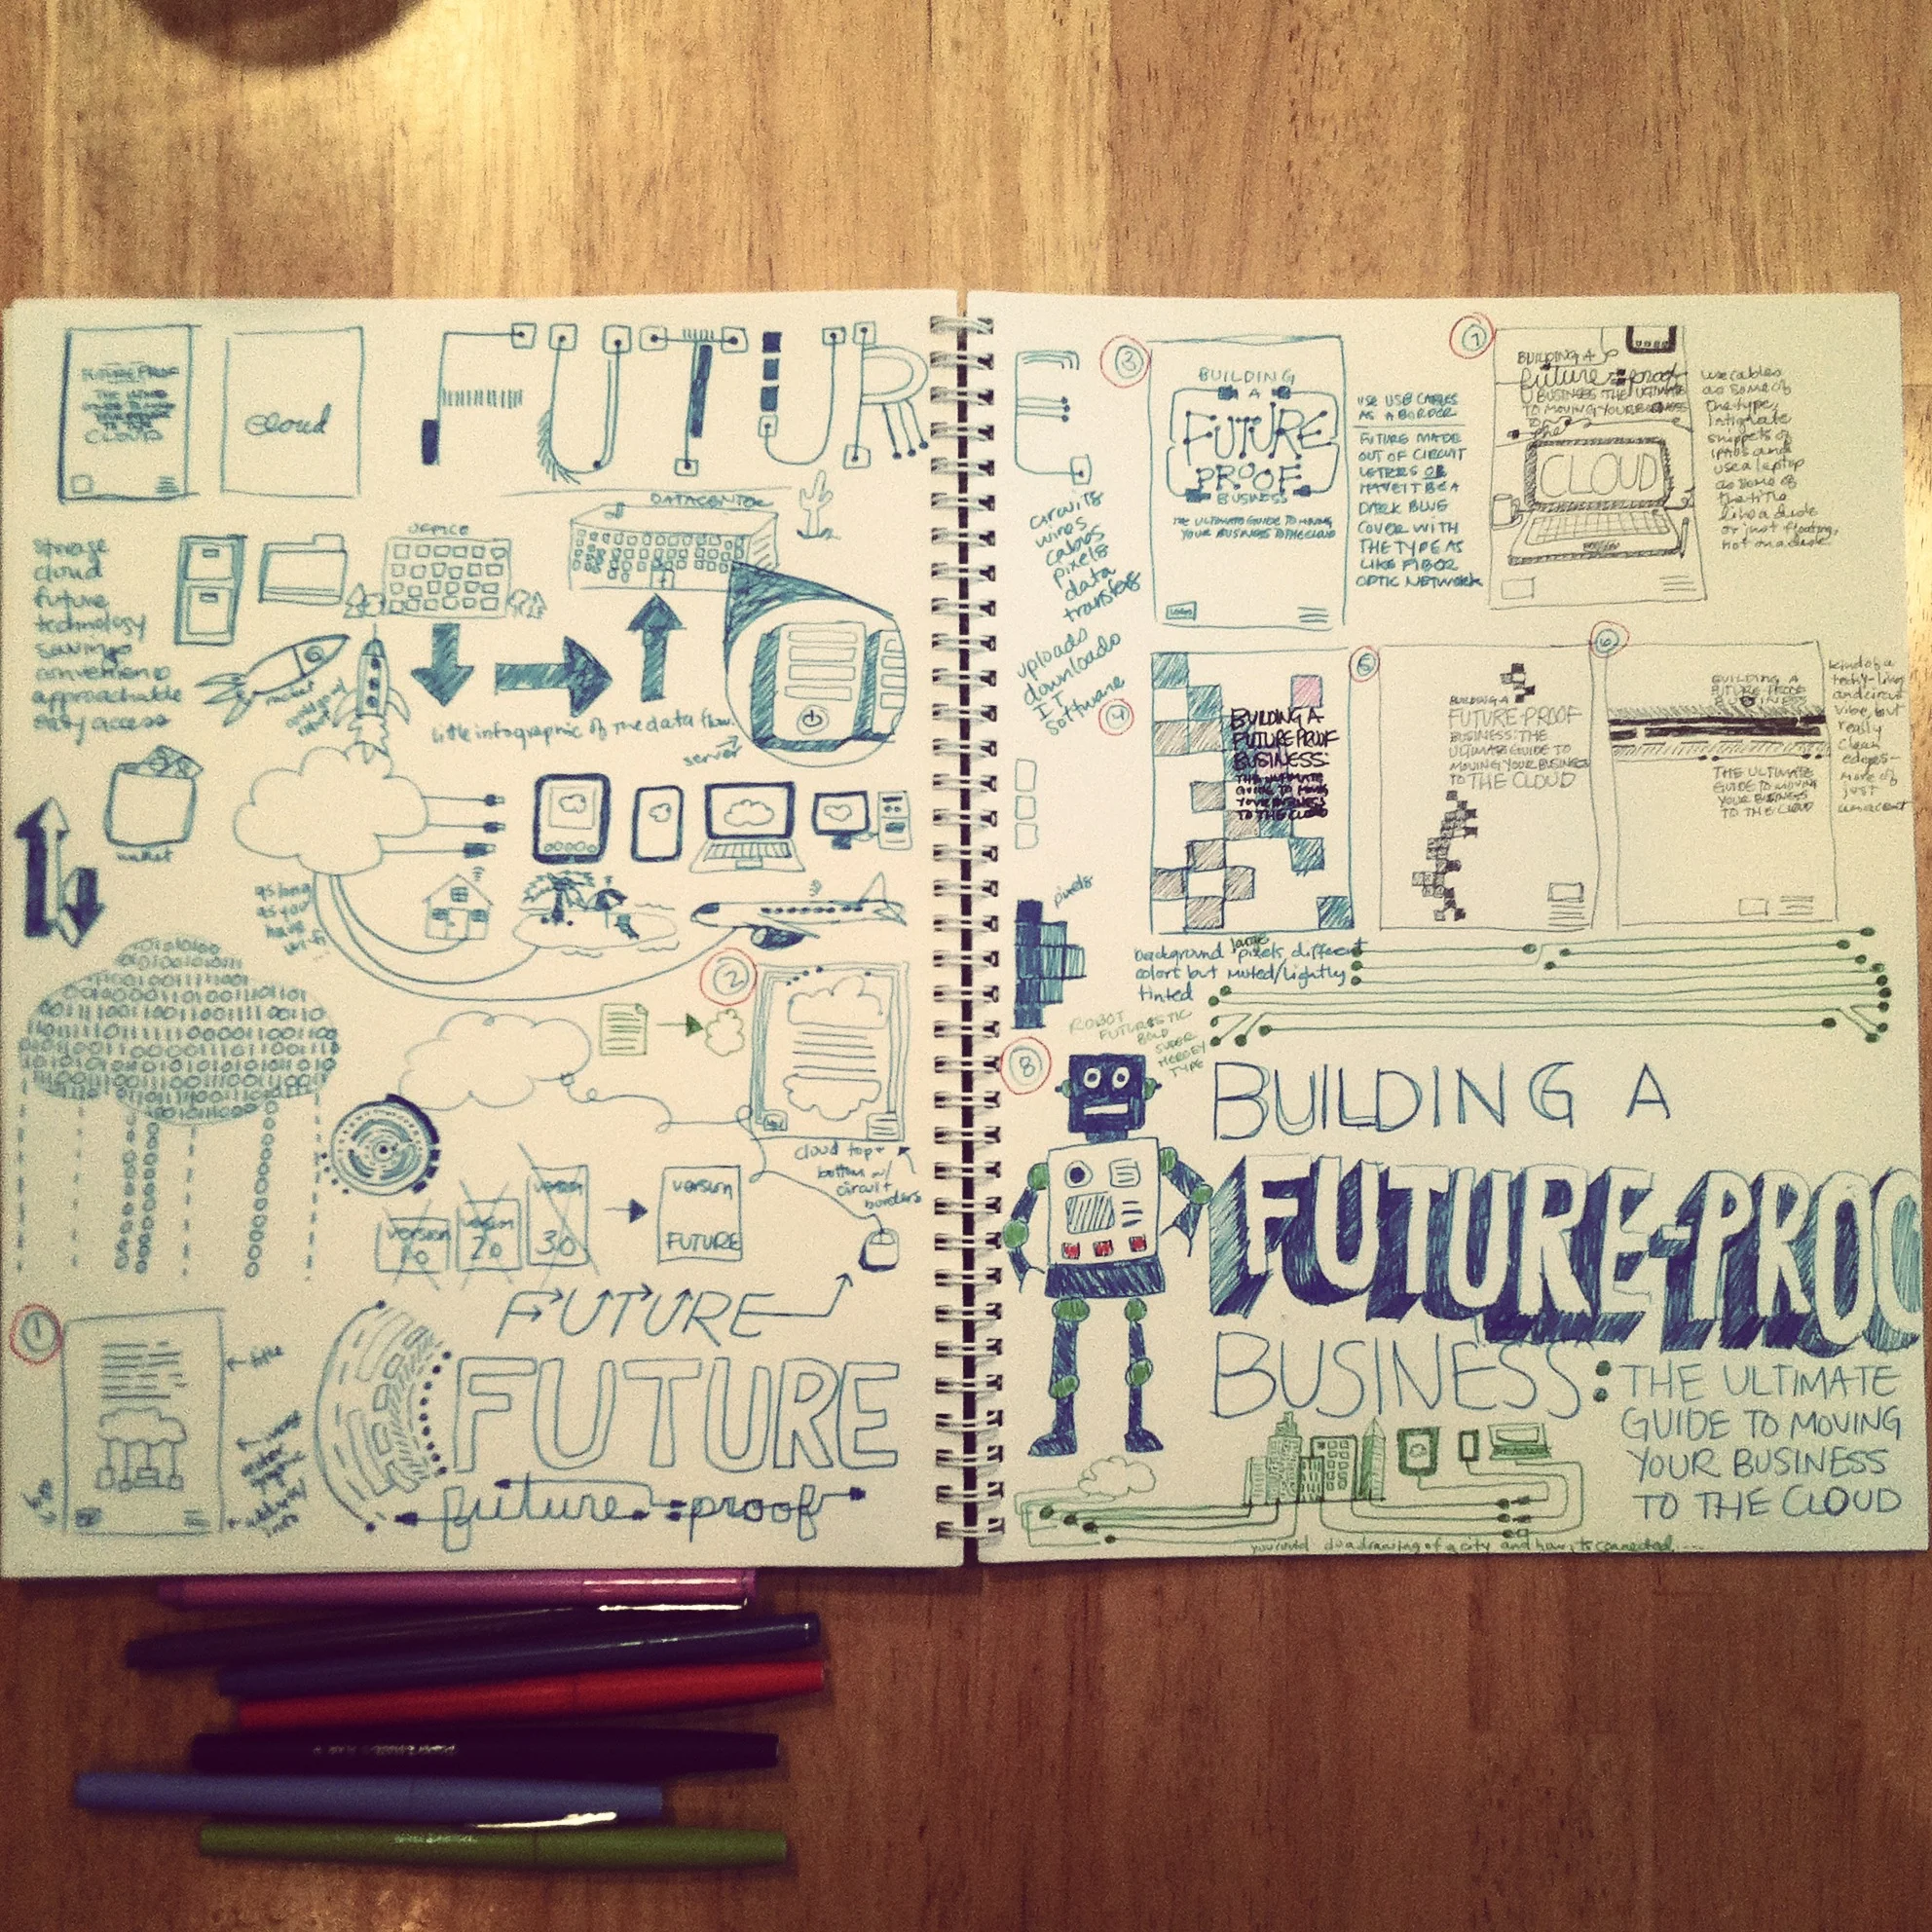 FUTURE PROOF
CLOUD
cloud
FUTURE
storage
cloud
future
technology
savings
convenience
approachable
easy access
OFFICE
DATACENTER
little infographic of the data flow.
server
rocket
wallet
as long
as you
have
wi-fi
2
cloud top +
bottom w/
circuit
borders
version
1.0
version
2.0
version
3.0
version
FUTURE
1
title
FUTURE
FUTURE
future-proof
circuits
wires
cables
pixels
data
transfers
uploads
downloads
IT
software
3
BUILDING
A
FUTURE
PROOF
BUSINESS
THE ULTIMATE GUIDE TO MOVING
YOUR BUSINESS TO THE CLOUD
LOGO
USE USB CABLES
AS A BORDER
FUTURE MADE
OUT OF CIRCUIT
LETTERS OR
HAVE IT BE A
DARK BLUE
COVER WITH
THE TYPE AS
LIKE FIBOR
OPTIC NETWORK
7
BUILDING A
future-proof
BUSINESS THE ULTIMATE
TO MOVING YOUR BUSINESS
TO
the
CLOUD
use cables
as some of
the type,
intigrate
snippets of
iPads and
use a laptop
as some of
the title
like a desk
or just floating,
not on a desk
4
BUILDING A
FUTURE PROOF
BUSINESS:
THE ULTIMATE
GUIDE TO MOVING
YOUR BUSINESS
TO THE CLOUD
background large pixels different
colors but muted/lightly
tinted
5
BUILDING A
FUTURE-PROOF
BUSINESS: THE
ULTIMATE GUIDE TO
MOVING YOUR BUSINESS
TO THE CLOUD
6
BUILDING A
FUTURE-PROOF
BUSINESS
THE ULTIMATE
GUIDE TO MOVING
YOUR BUSINESS
TO THE CLOUD
kind of a
techy-lines
and circuit
vibe, but
really
clean
edges-
more of
just
an accent
pixels
8
ROBOT
FUTURISTIC
BOLD
SUPER
HEROEY
TYPE
BUILDING A
FUTURE-PROO
BUSINESS:
THE ULTIMATE
GUIDE TO MOVING
YOUR BUSINESS
TO THE CLOUD
you could do a drawing of a city and how its connected....